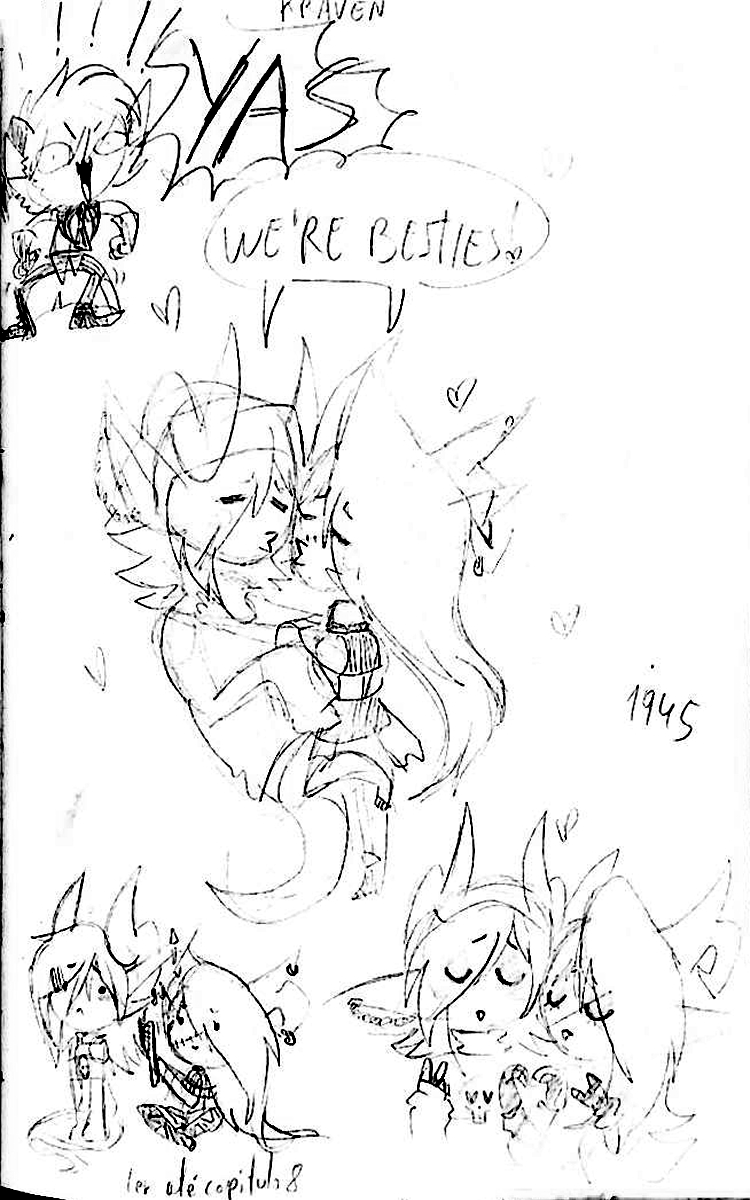 KRAVEN
! ! ! !
YAS
WE'RE BESTIES!
1945
ler até capitulo 8